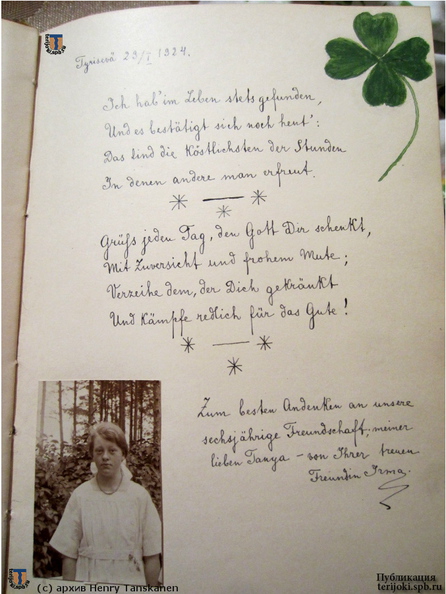 Tyrisevä 23/I 1924.
Ich hab' im Leben stets gefunden,
Und es bestätigt sich noch heut':
Das sind die Köstlichsten der Stunden
In denen andere man erfreut.
Grüß jeden Tag, den Gott Dir schenkt,
Mit Zuversicht und frohem Mute;
Verzeihe dem, der Dich gekränkt
Und Kämpfe redlich für das Gute!
Zum besten Andenken an unsere
sechsjährige Freundschaft, meiner
lieben Tanya – von Ihrer treuen
Freundin Irma.
Публикация
terijoki.spb.ru
(c) архив Henry Tanskanen